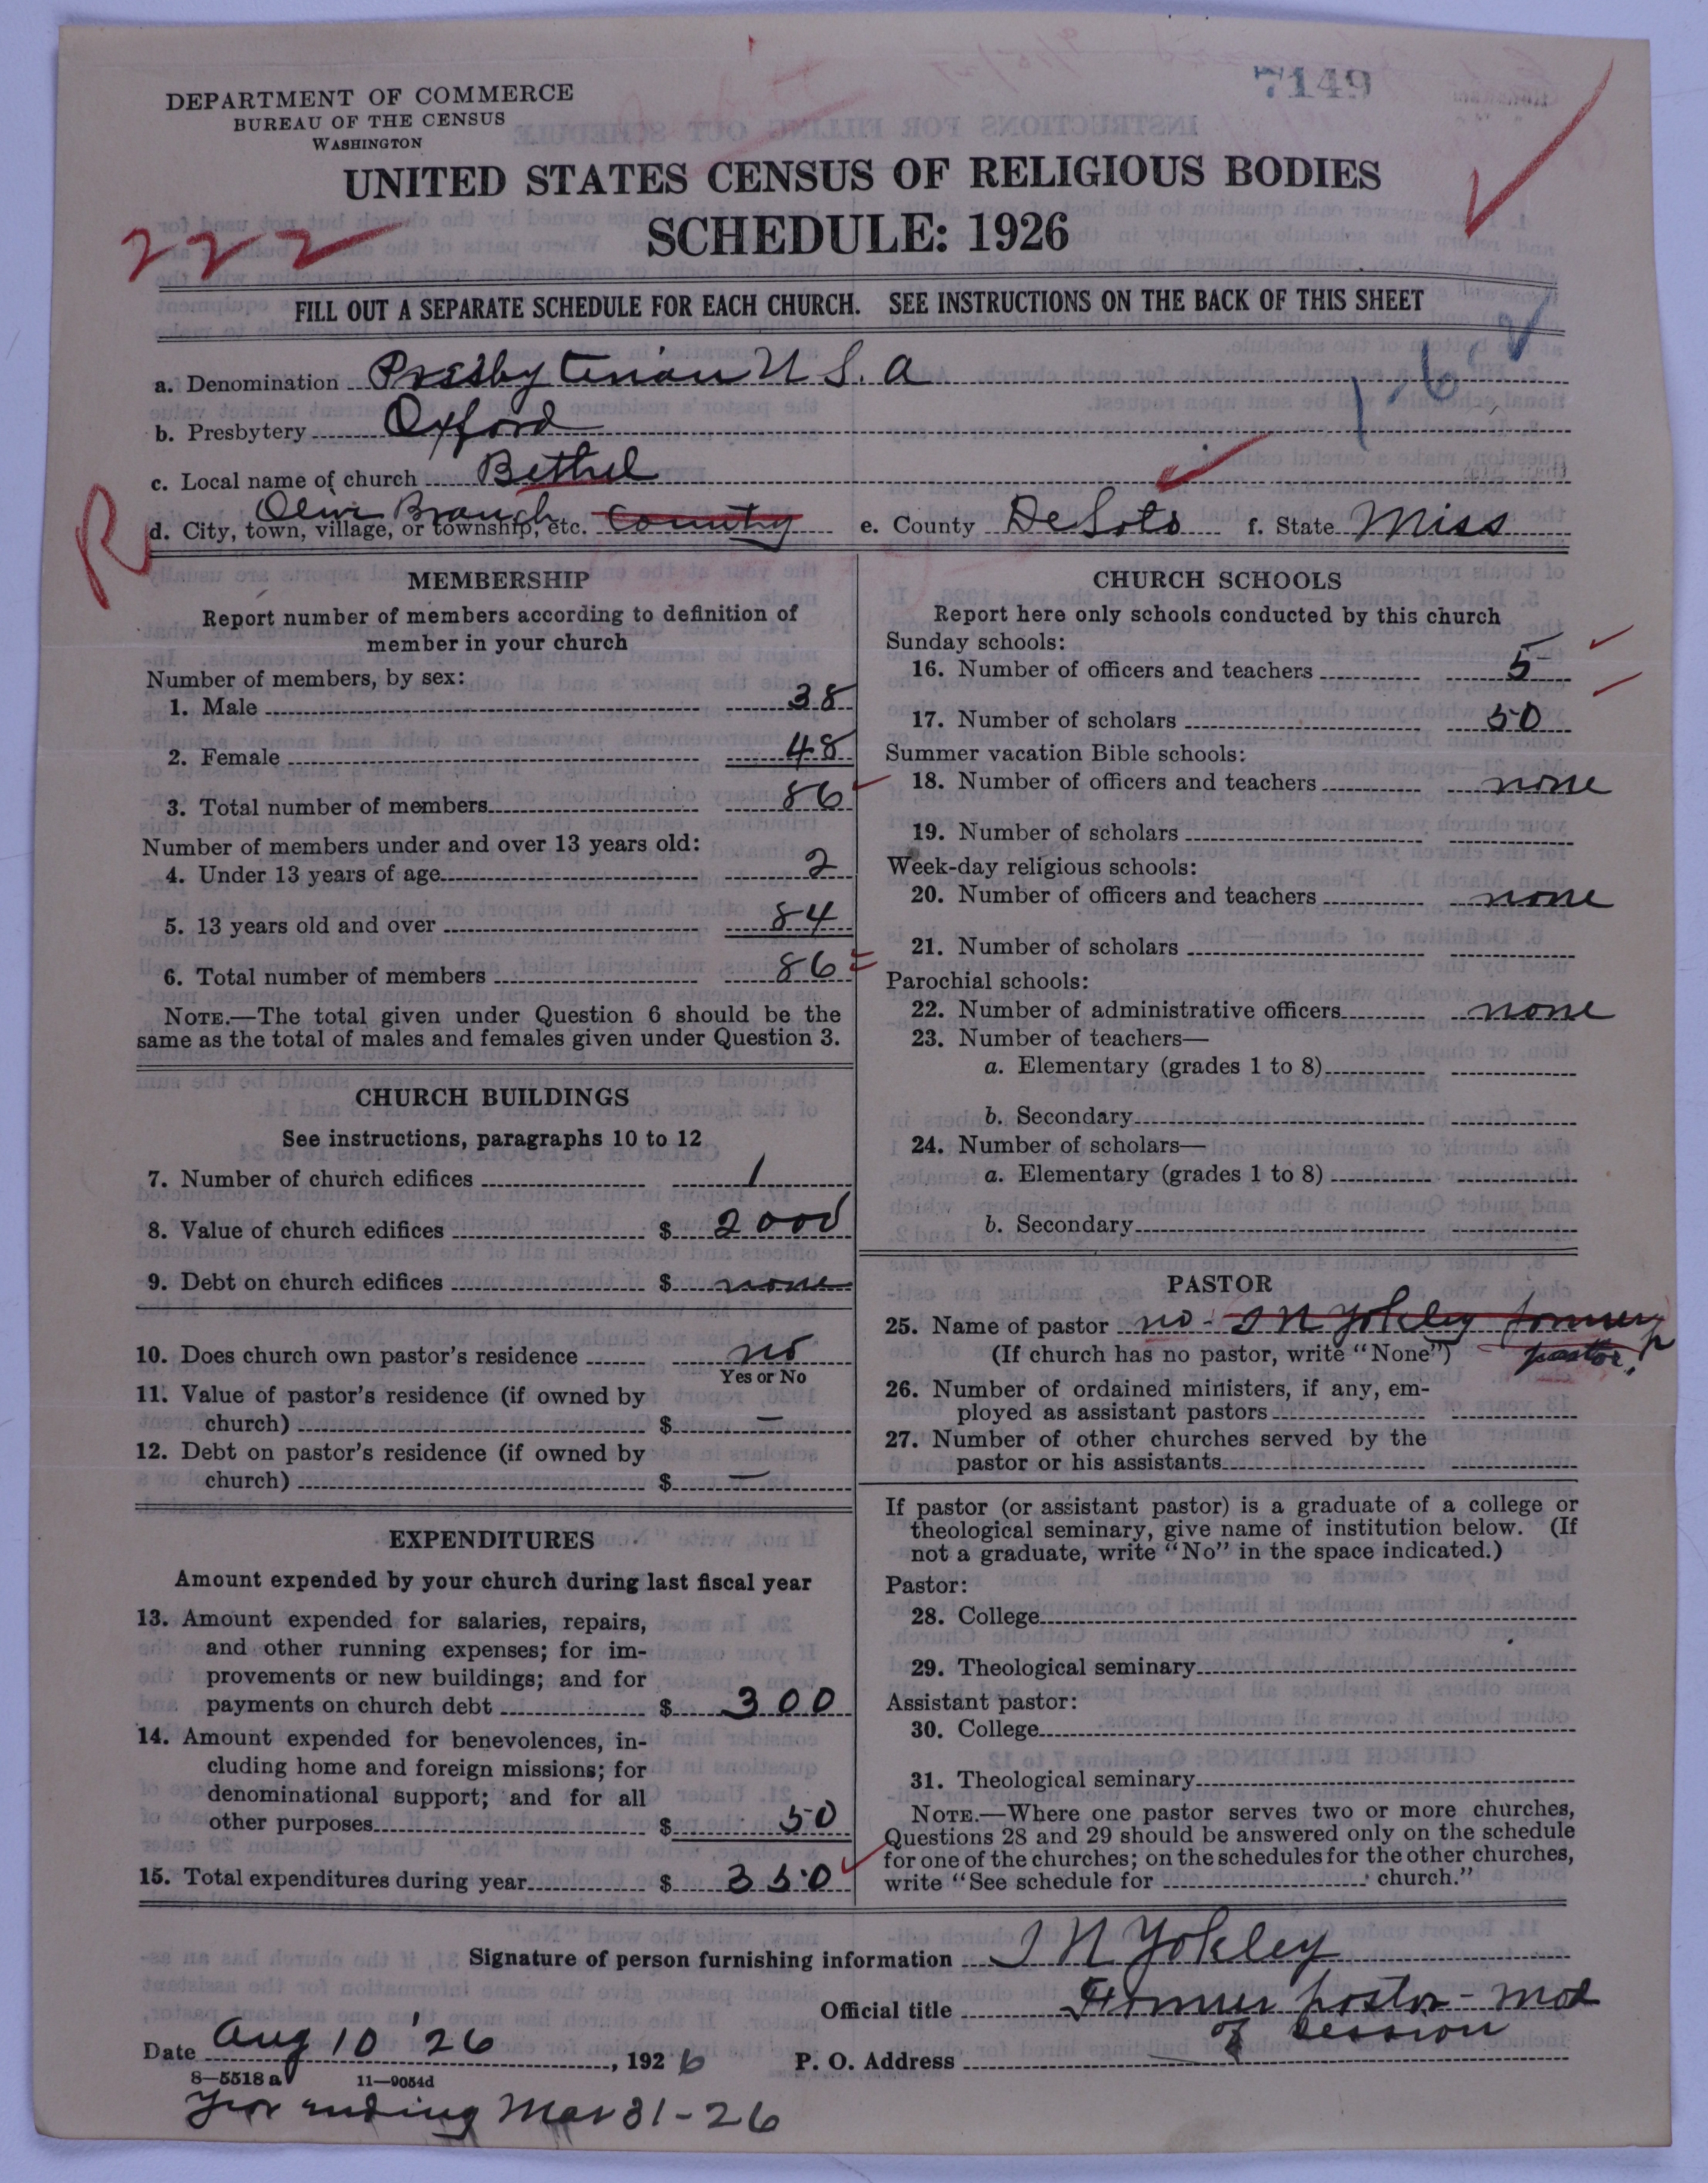 7149
DEPARTMENT OF COMMERCE
BUREAU OF THE CENSUS
WASHINGTON
UNITED STATES CENSUS OF RELIGIOUS BODIES
SCHEDULE: 1926
222
FILL OUT A SEPARATE SCHEDULE FOR EACH CHURCH. SEE INSTRUCTIONS ON THE BACK OF THIS SHEET
a. Denomination Presbyterian U S. A
b. Presbytery Oxford
c. Local name of church Bethel
R
Olive Branch
d. City, town, village, or township, etc. Country e. County DeSoto f. State Miss
MEMBERSHIP
Report number of members according to definition of
member in your church
Number of members, by sex:
1. Male 38
2. Female 48
3. Total number of members 86
Number of members under and over 13 years old:
4. Under 13 years of age 2
5. 13 years old and over 84
6. Total number of members 86
NOTE.—The total given under Question 6 should be the
same as the total of males and females given under Question 3.
CHURCH BUILDINGS
See instructions, paragraphs 10 to 12
7. Number of church edifices 1
8. Value of church edifices $ 2000
9. Debt on church edifices $ none
10. Does church own pastor's residence no
Yes or No
11. Value of pastor's residence (if owned by
church) $ —
12. Debt on pastor's residence (if owned by
church) $ —
EXPENDITURES
Amount expended by your church during last fiscal year
13. Amount expended for salaries, repairs,
and other running expenses; for im-
provements or new buildings; and for
payments on church debt $ 300
14. Amount expended for benevolences, in-
cluding home and foreign missions; for
denominational support; and for all
other purposes $ 50
15. Total expenditures during year $ 350
CHURCH SCHOOLS
Report here only schools conducted by this church
Sunday schools:
16. Number of officers and teachers 5
17. Number of scholars 50
Summer vacation Bible schools:
18. Number of officers and teachers none
19. Number of scholars
Week-day religious schools:
20. Number of officers and teachers none
21. Number of scholars
Parochial schools:
22. Number of administrative officers none
23. Number of teachers—
a. Elementary (grades 1 to 8)
b. Secondary
24. Number of scholars—
a. Elementary (grades 1 to 8)
b. Secondary
PASTOR
25. Name of pastor no - J N Yokley former
(If church has no pastor, write "None") pastor.
26. Number of ordained ministers, if any, em-
ployed as assistant pastors
27. Number of other churches served by the
pastor or his assistants
If pastor (or assistant pastor) is a graduate of a college or
theological seminary, give name of institution below. (If
not a graduate, write "No" in the space indicated.)
Pastor:
28. College
29. Theological seminary
Assistant pastor:
30. College
31. Theological seminary
NOTE.—Where one pastor serves two or more churches,
Questions 28 and 29 should be answered only on the schedule
for one of the churches; on the schedules for the other churches,
write "See schedule for church."
Signature of person furnishing information J N Yokley
Official title Former pastor - Mod
of session
Date Aug 10 '26, 1926 P. O. Address
8—5518 a 11—9054d
Year ending Mar 31-26